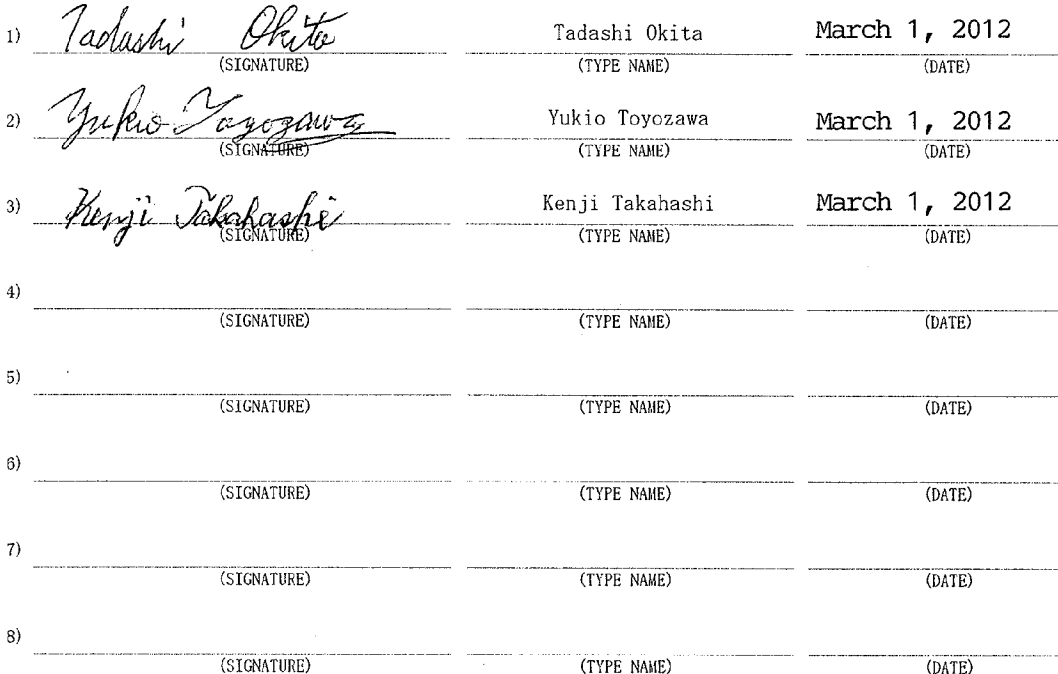 1) Tadashi Okita Tadashi Okita March 1, 2012
(SIGNATURE) (TYPE NAME) (DATE)
2) Yukio Toyozawa Yukio Toyozawa March 1, 2012
(SIGNATURE) (TYPE NAME) (DATE)
3) Kenji Takahashi Kenji Takahashi March 1, 2012
(SIGNATURE) (TYPE NAME) (DATE)
4)
(SIGNATURE) (TYPE NAME) (DATE)
5)
(SIGNATURE) (TYPE NAME) (DATE)
6)
(SIGNATURE) (TYPE NAME) (DATE)
7)
(SIGNATURE) (TYPE NAME) (DATE)
8)
(SIGNATURE) (TYPE NAME) (DATE)